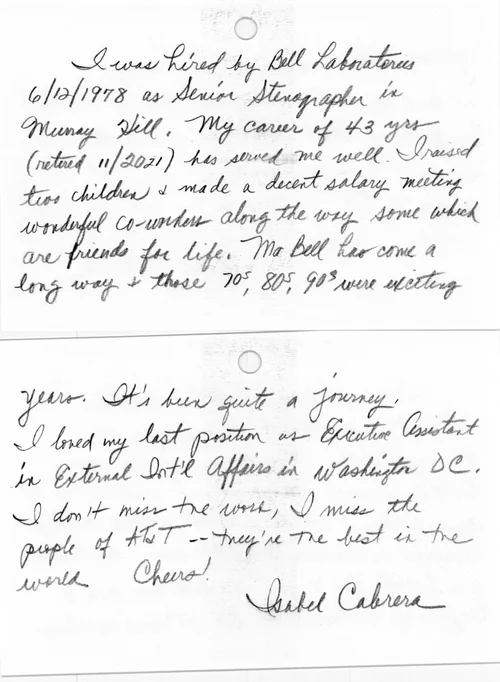 I was hired by Bell Laboratories
6/12/1978 as Senior Stenographer in
Murray Hill. My career of 43 yrs
(retired 11/2021) has served me well. I raised
two children & made a decent salary meeting
wonderful co-workers along the way some which
are friends for life. Ma Bell has come a
long way & those 70s, 80s, 90s were exciting
years. It's been quite a journey.
I loved my last position as Executive Assistant
in External Int'l Affairs in Washington DC.
I don't miss the work, I miss the
people of AT&T -- they're the best in the
world Cheers!
Isabel Cabrera